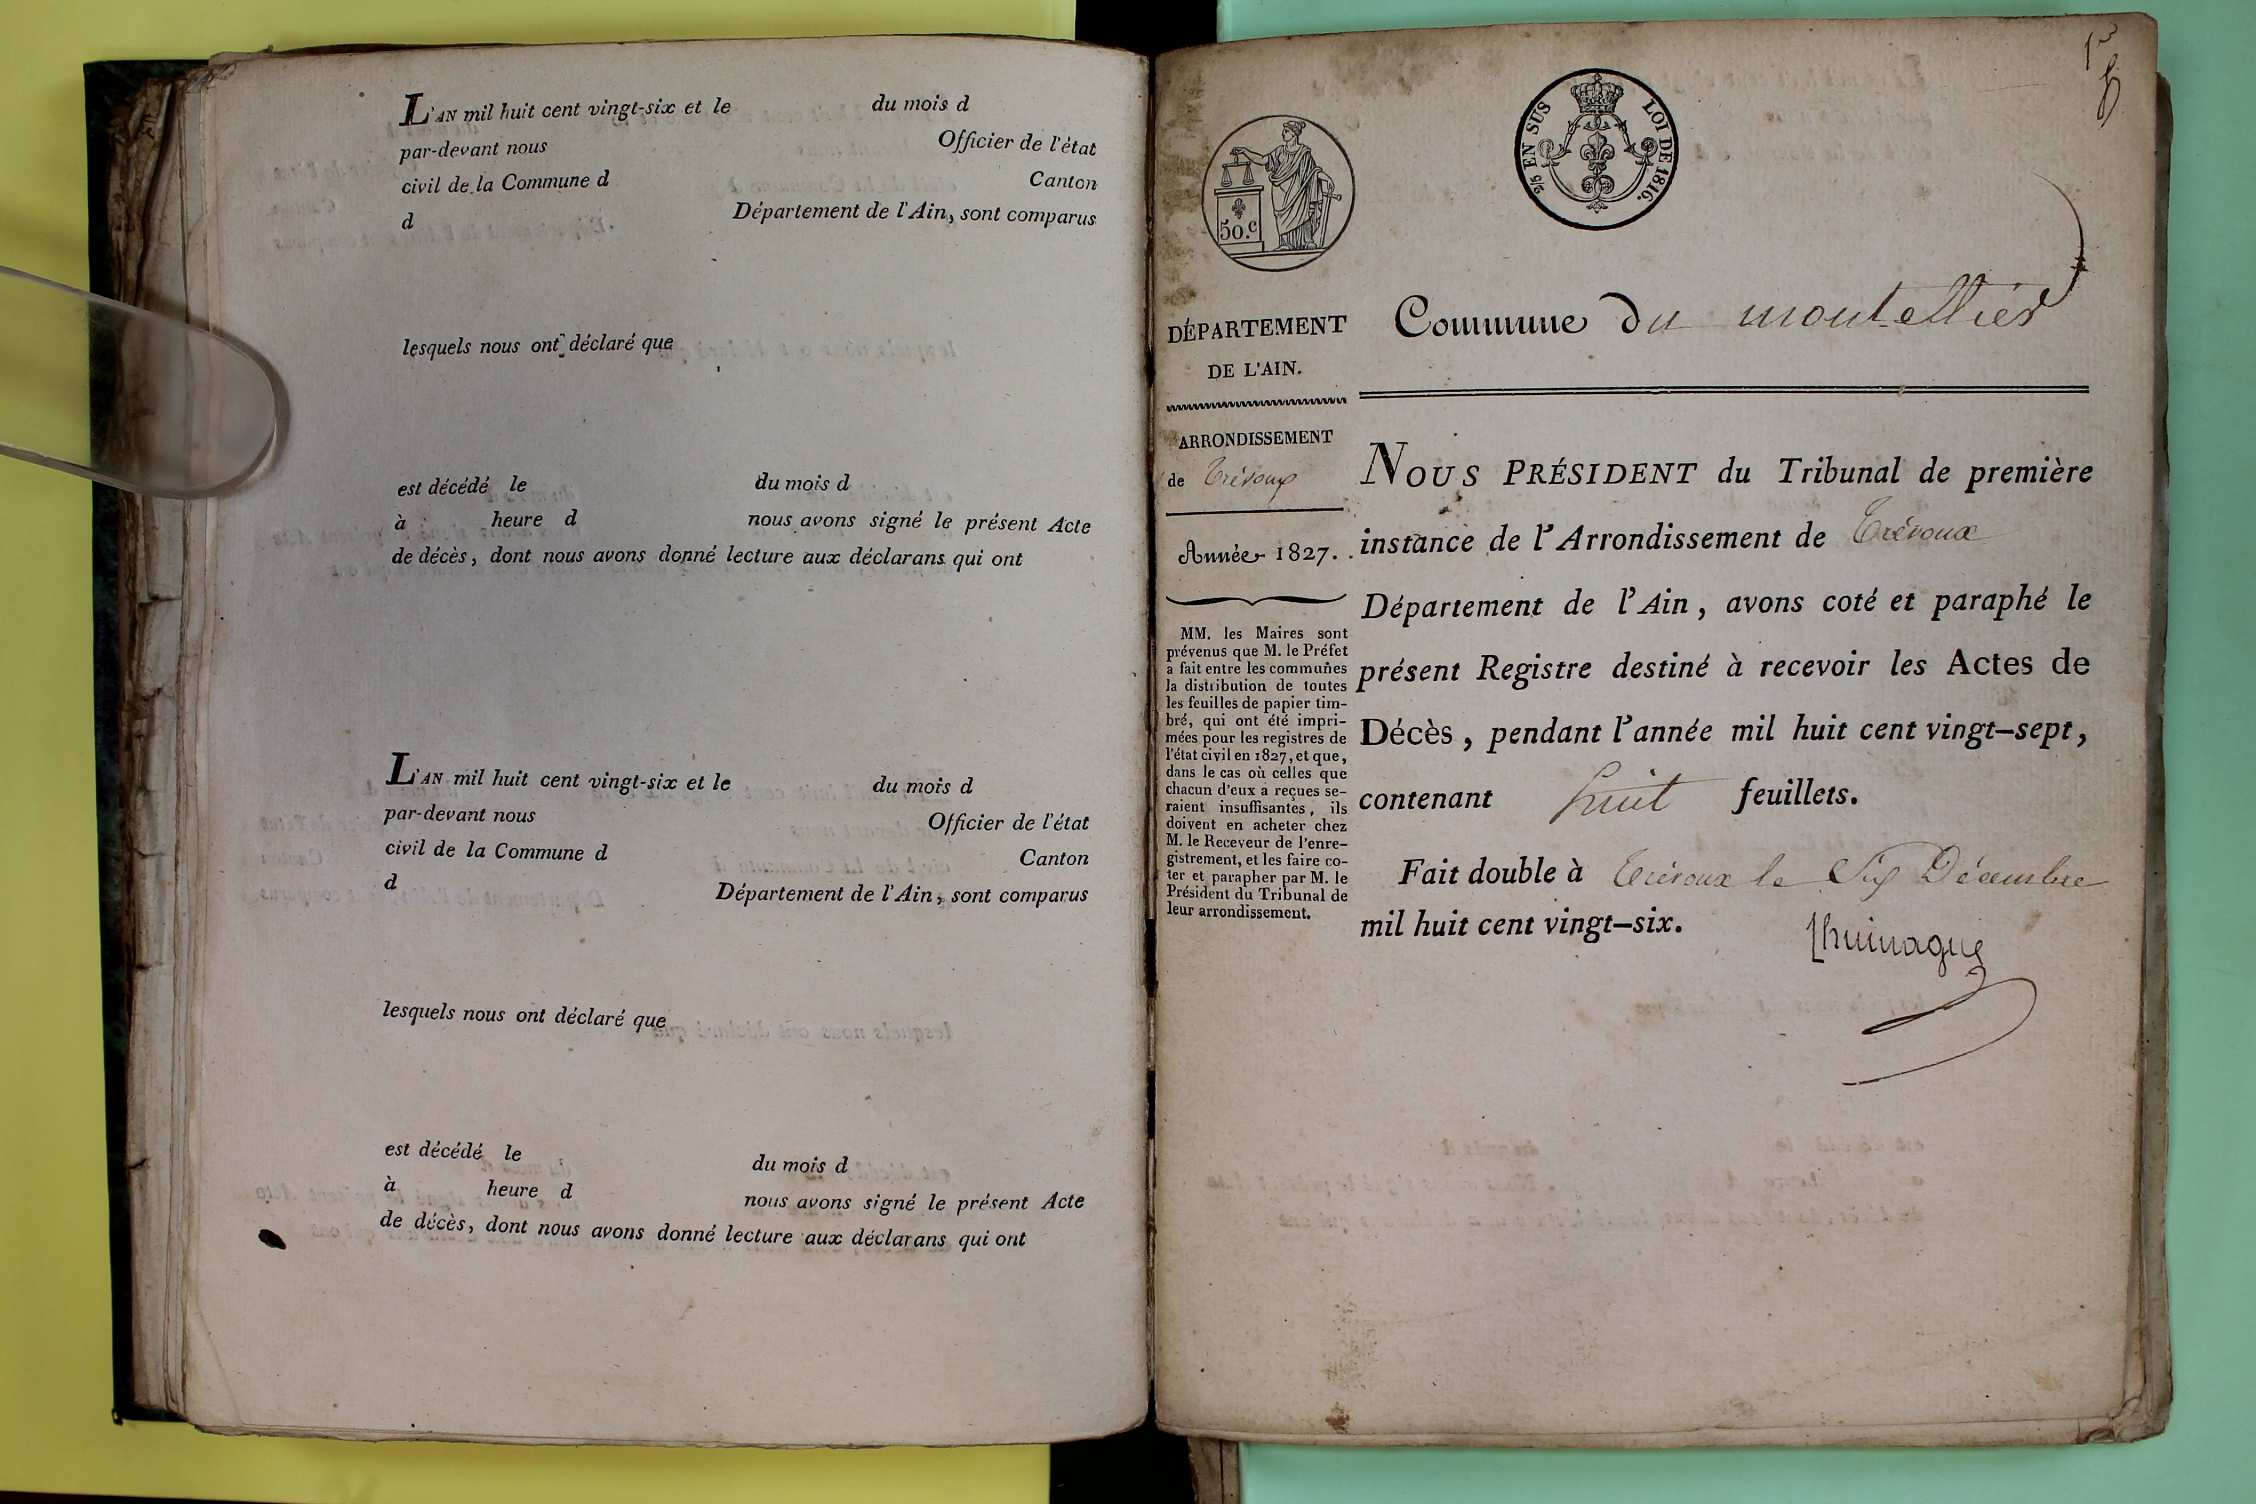 L'AN mil huit cent vingt-six et le du mois d
par-devant nous Officier de l'état
civil de la Commune d Canton
d Département de l'Ain, sont comparus
lesquels nous ont déclaré que
est décédé le du mois d
à heure d nous avons signé le présent Acte
de décès, dont nous avons donné lecture aux déclarans qui ont
L'AN mil huit cent vingt-six et le du mois d
par-devant nous Officier de l'état
civil de la Commune d Canton
d Département de l'Ain, sont comparus
lesquels nous ont déclaré que
est décédé le du mois d
à heure d nous avons signé le présent Acte
de décès, dont nous avons donné lecture aux déclarans qui ont
50.c
2/5 EN SUS LOI DE 1816.
DÉPARTEMENT
DE L'AIN.
ARRONDISSEMENT
de Trévoux
Année 1827.
MM. les Maires sont
prévenus que M. le Préfet
a fait entre les communes
la distribution de toutes
les feuilles de papier tim-
bré, qui ont été impri-
mées pour les registres de
l'état civil en 1827, et que,
dans le cas où celles que
chacun d'eux a reçues se-
raient insuffisantes, ils
doivent en acheter chez
M. le Receveur de l'enre-
gistrement, et les faire co-
ter et parapher par M. le
Président du Tribunal de
leur arrondissement.
Commune du montellier
NOUS PRÉSIDENT du Tribunal de première
instance de l'Arrondissement de Trévoux
Département de l'Ain, avons coté et paraphé le
présent Registre destiné à recevoir les Actes de
Décès, pendant l'année mil huit cent vingt-sept,
contenant huit feuillets.
Fait double à Trévoux le Six Décembre
mil huit cent vingt-six.